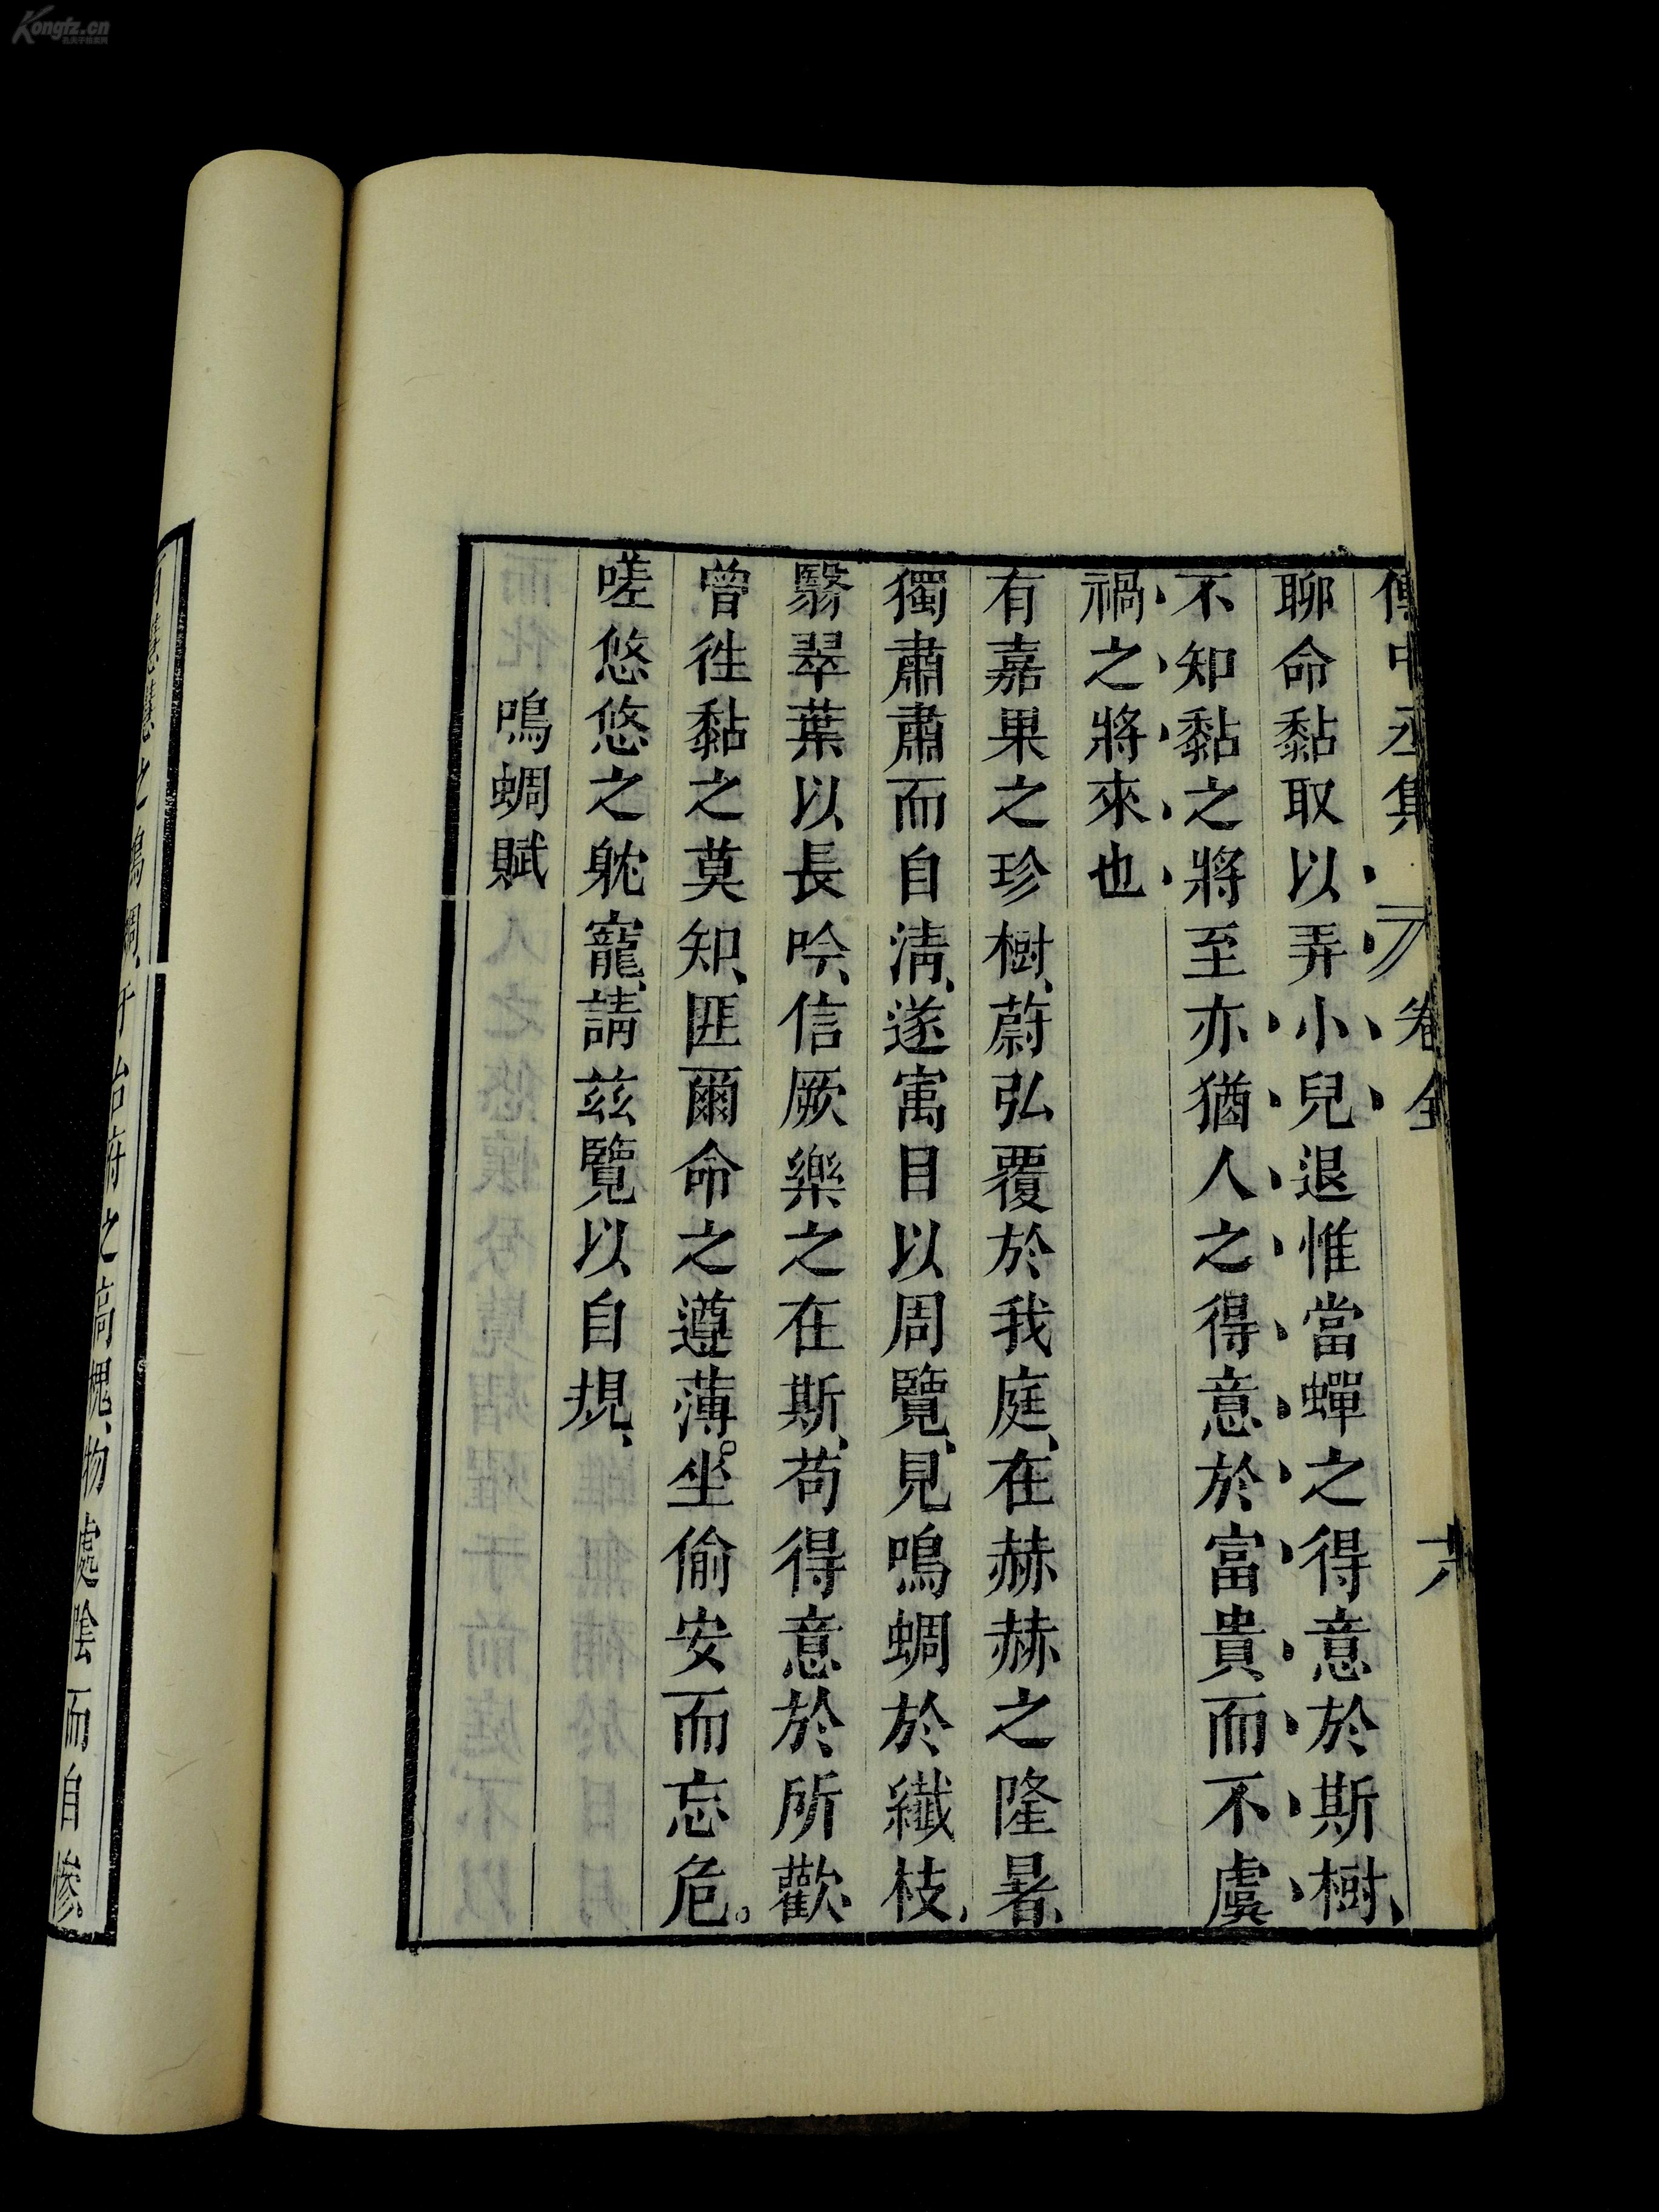 傅中丞集
卷全
六
聊命黏取以弄小兒退惟當蟬之得意於斯樹、
不知黏之將至亦猶人之得意於富貴而不虞
禍之將來也
有嘉果之珍樹、蔚弘覆於我庭、在赫赫之隆暑、
獨肅肅而自清、遂寓目以周覽、見鳴蜩於纖枝、
翳翠葉以長吟、信厥樂之在斯、苟得意於所歡、
曾徃黏之莫知、匪爾命之遵薄。坐偷安而忘危。
嗟悠悠之躭寵、請茲覽以自規、
鳴蜩賦
之鳴蜩、于台府之高槐、物處陰而自慘。
Kongfz.cn